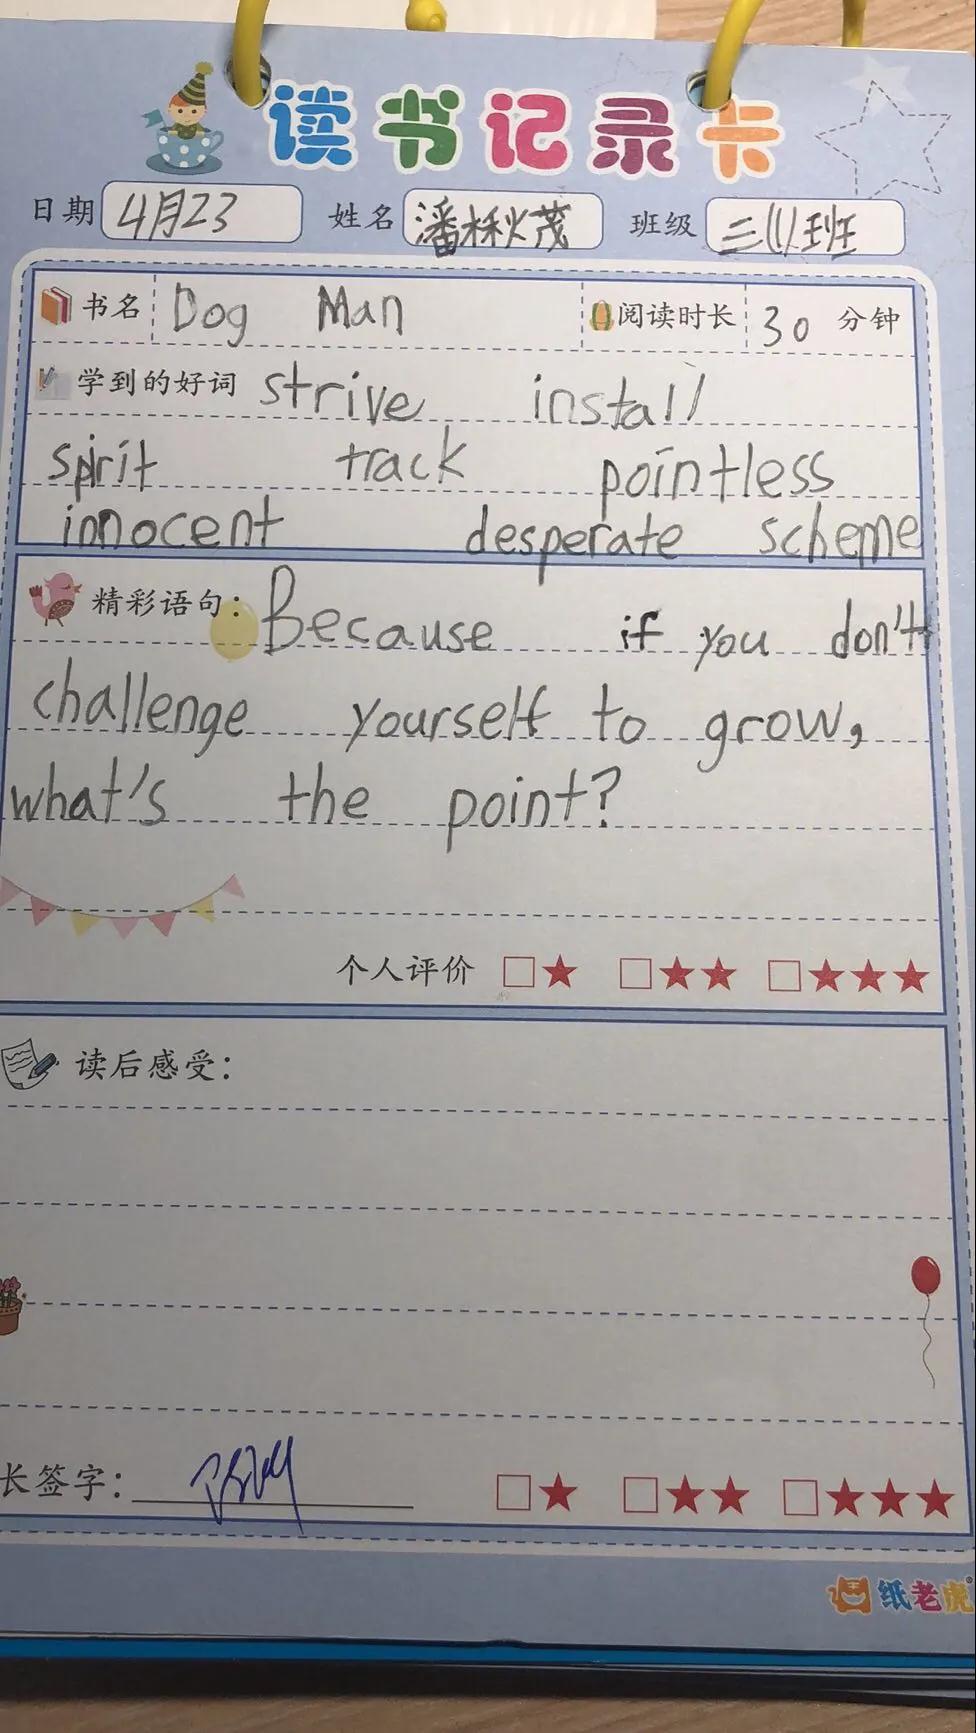 读书记录卡
日期 4月23 姓名 潘秋茂 班级 三(1)班
书名 Dog Man 阅读时长 30 分钟
学到的好词 strive install
spirit track pointless
innocent desperate scheme
精彩语句: Because if you don't
challenge yourself to grow,
what's the point?
个人评价 □★ □★★ □★★★
读后感受:
长签字: □★ □★★ □★★★
纸老虎